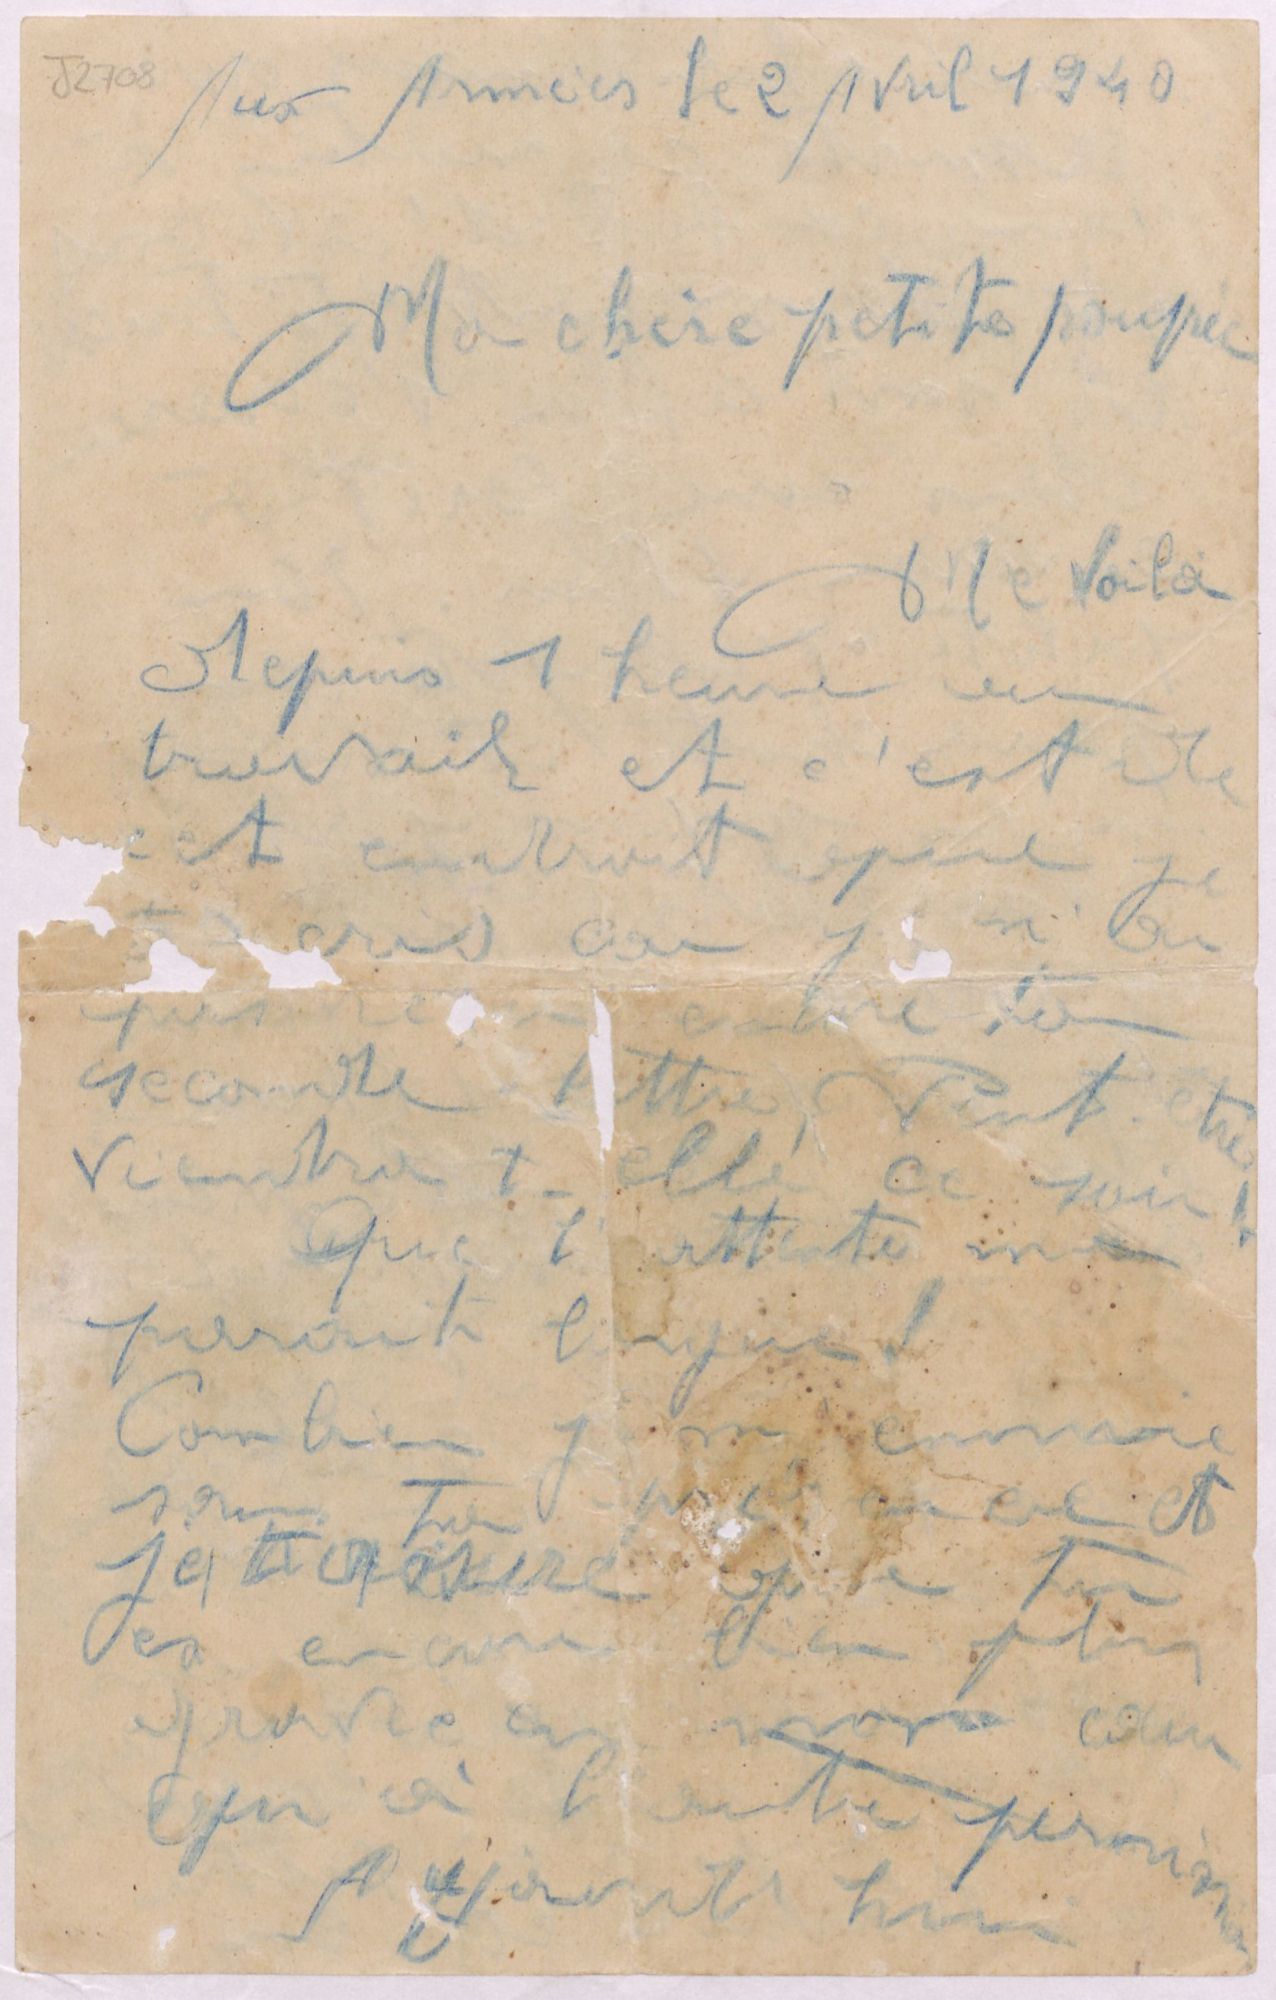 J2708
Aux Armées le 2 Avril 1940
Ma chère petite poupée
Me voilà
depuis 1 heure au
travail et c'est de
cet endroit que je
cris car je n'ai
pas reçu encore ta
seconde lettre, Peut-être
viendra t-elle ce soir!
Que l'attente me
parait longue!
Combien je m'ennuie
sans ta présence et
je t'assure que tu
es encore bien plus
gravée en mon cœur
qu'à l'autre permission
Aujourd'hui